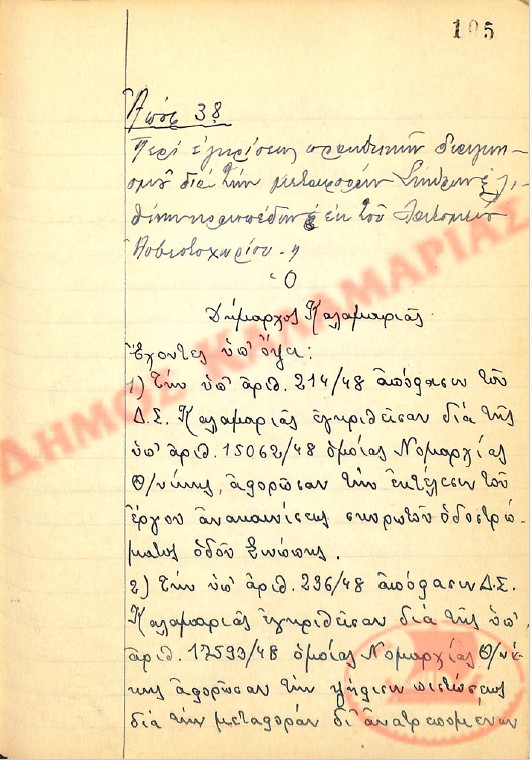 105
Ἀπόφ 38
Περί ἐγκρίσεως πρακτικῶν διαγωνι-
σμοῦ διά τήν μεταφοράν Σκύρων & λι-
θίνων κρασπέδων ἐκ τοῦ Λατομείου
Ἀσβεστοχωρίου.-
Ὁ
Δήμαρχος Καλαμαριᾶς
Ἔχοντες ὑπ' ὄψει:
1) Τήν ὑπ' ἀριθ. 214/48 ἀπόφασιν τοῦ
Δ.Σ. Καλαμαριᾶς ἐγκριθεῖσαν διά τῆς
ὑπ' ἀριθ. 15062/48 ὁμοίας Νομαρχίας
Θ/νίκης, ἀφορῶσαν τήν ἐκτέλεσιν τοῦ
ἔργου ἀνακαινίσεως σκυρωτοῦ ὁδοστρώ-
ματος ὁδοῦ Σινώπης.
2) Τήν ὑπ' ἀριθ. 236/48 ἀπόφασιν Δ.Σ.
Καλαμαριᾶς ἐγκριθεῖσαν διά τῆς ὑπ'
ἀριθ. 17593/48 ὁμοίας Νομαρχίας Θ/νί-
κης ἀφορῶσαν τήν ψήφισιν πιστώσεως
διά τήν μεταφοράν δι' ἀνατρεπομένων
ΔΗΜΟΣ ΚΑΛΑΜΑΡΙΑΣ